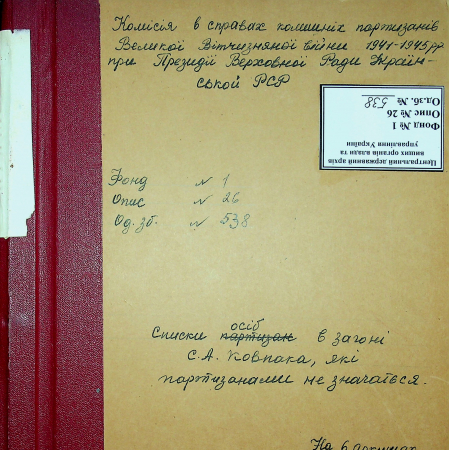 Комісія в справах колишніх партизанів
Великої Вітчизняної війни 1941-1945 рр.
при Президії Верховної Ради Україн-
ської РСР
Центральний державний архів
вищих органів влади та
управління України
Фонд № 1
Опис № 26
Од.зб. № 538
Фонд № 1
Опис № 26
Од. зб. № 538.
осіб
Списки партизан в загоні
С.А. Ковпака, які
партизанами не значаться.
На 6 аркушах